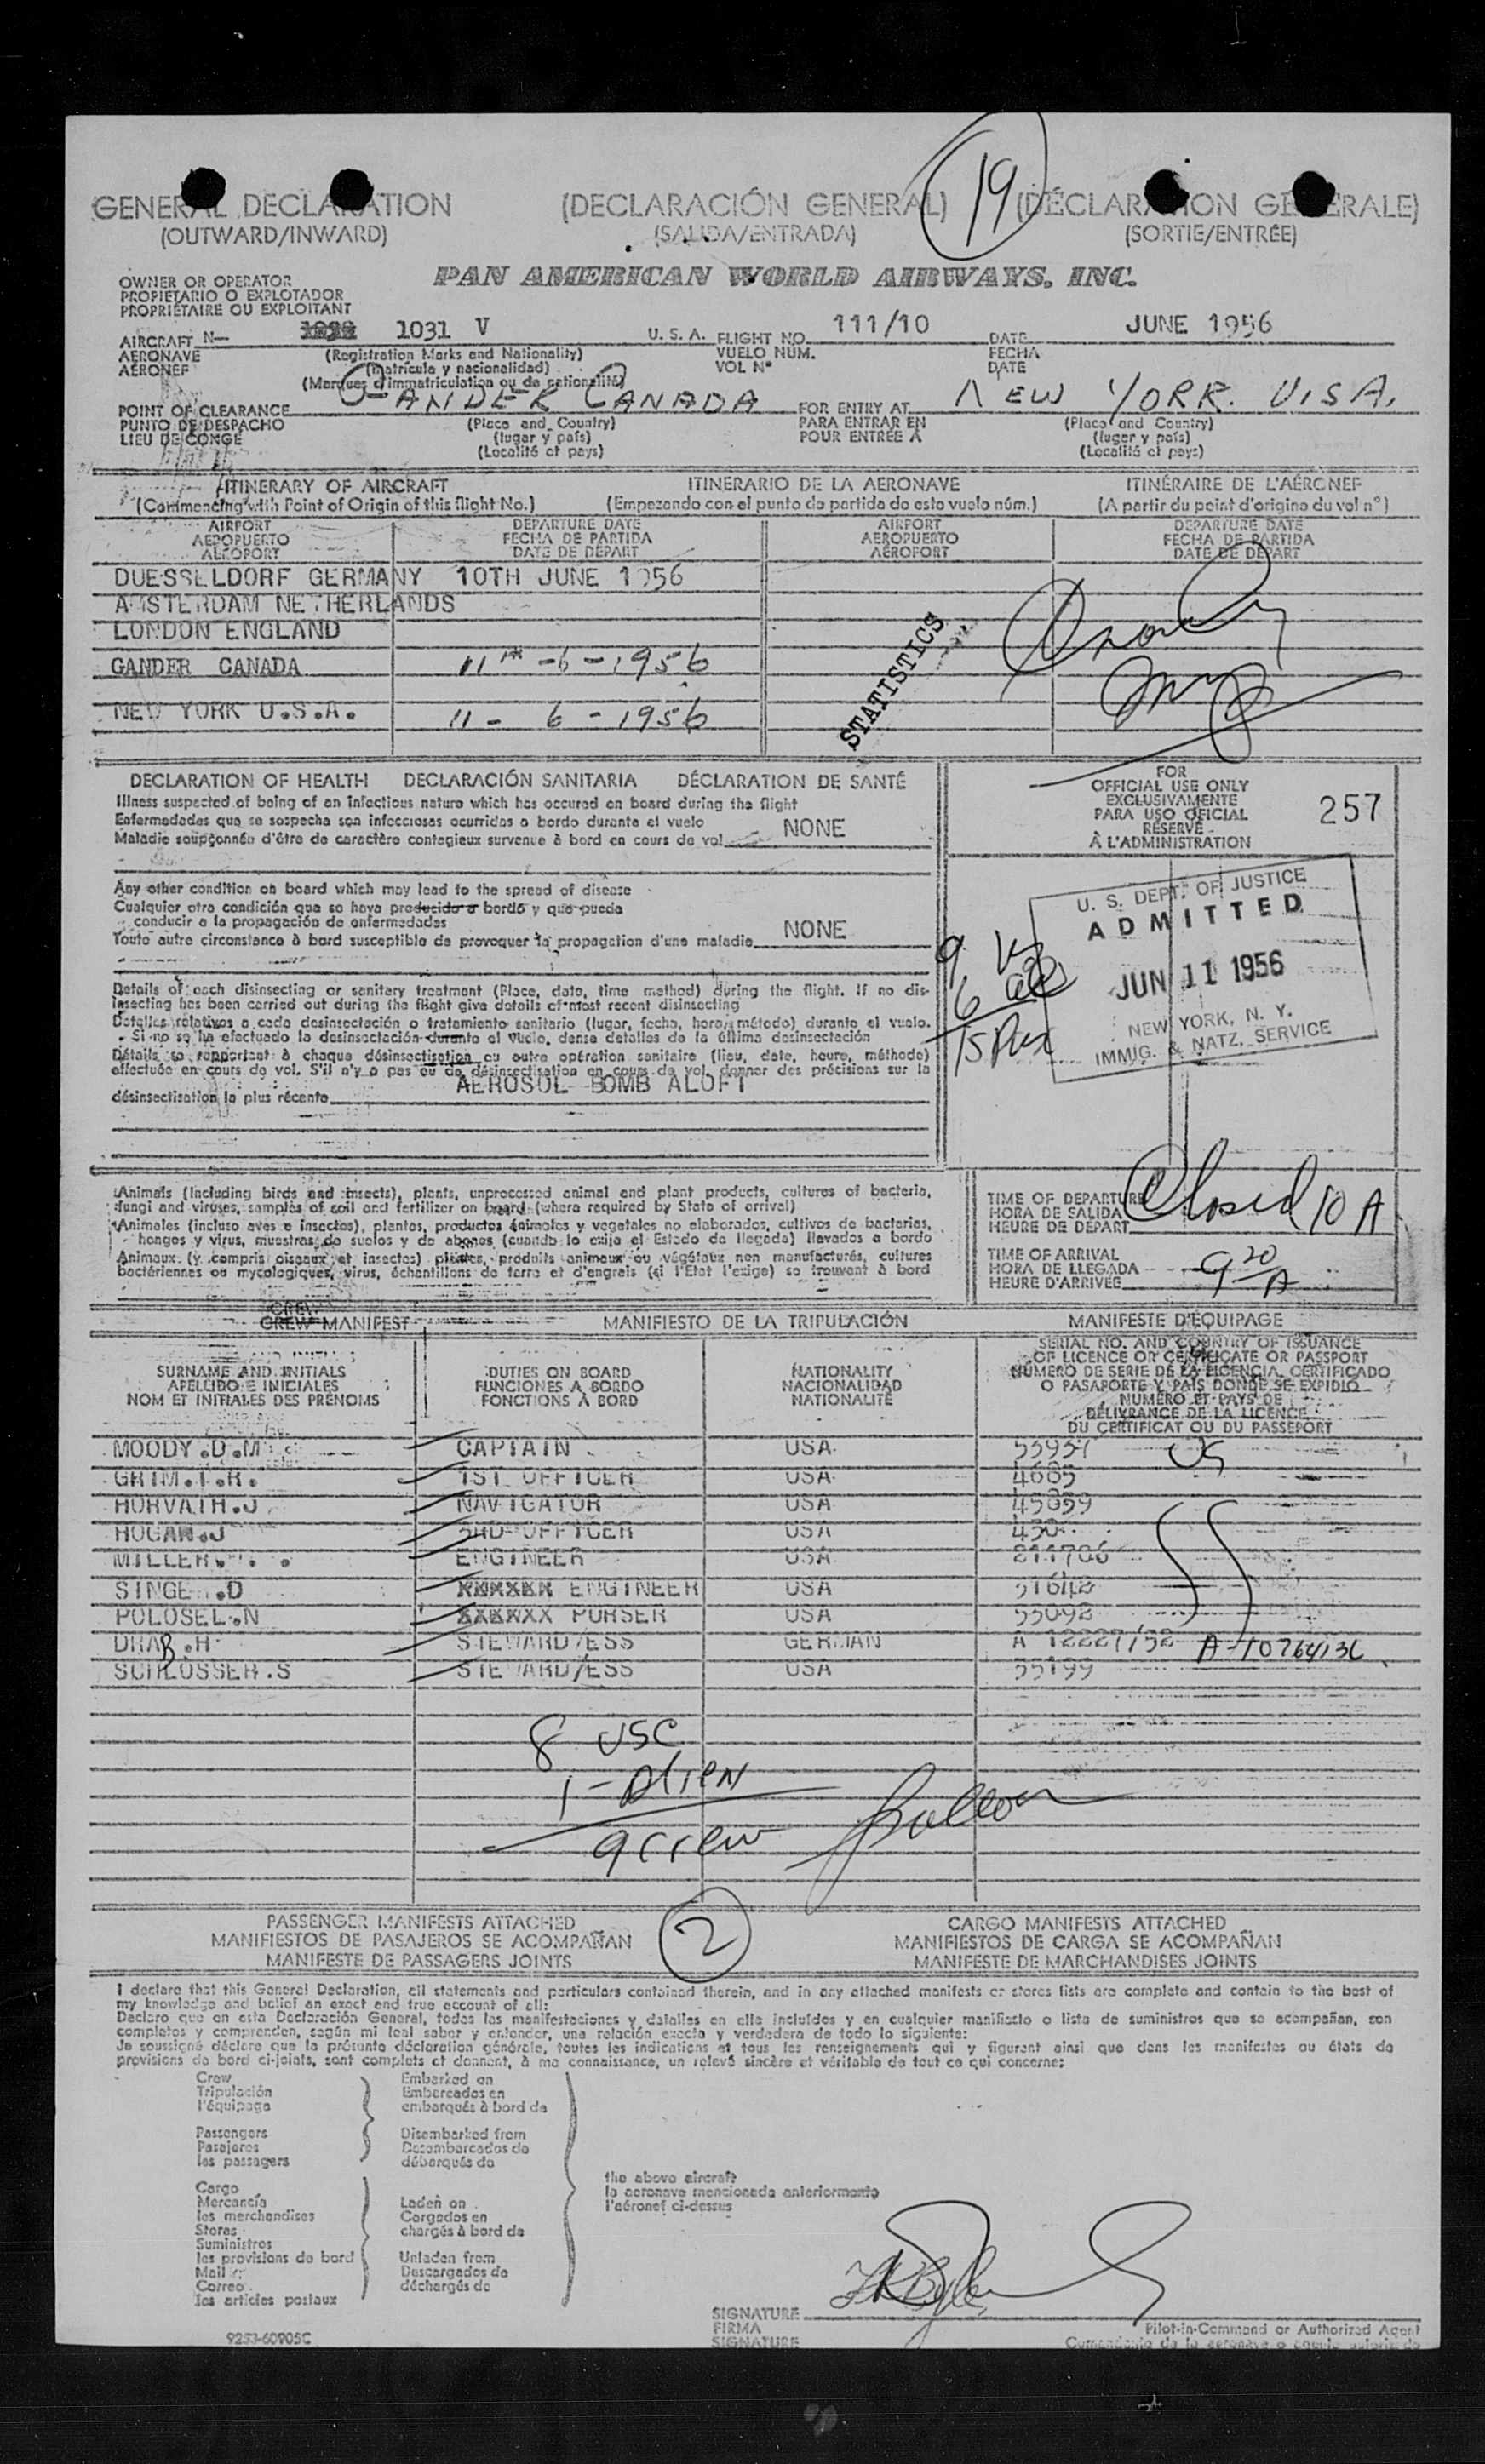 19
GENERAL DECLARATION (DECLARACIÓN GENERAL) (DÉCLARATION GÉNÉRALE)
(OUTWARD/INWARD) (SALIDA/ENTRADA) (SORTIE/ENTRÉE)
PAN AMERICAN WORLD AIRWAYS, INC.
OWNER OR OPERATOR
PROPIETARIO O EXPLOTADOR
PROPRIÉTAIRE OU EXPLOITANT
AIRCRAFT N— 1031 V U. S. A. FLIGHT NO. 111/10 DATE JUNE 1956
AERONAVE (Registration Marks and Nationality) VUELO NÚM. FECHA
AÉRONEF (matrícula y nacionalidad) VOL Nº DATE
(Marques d'immatriculation ou de nationalité)
POINT OF CLEARANCE GANDER CANADA FOR ENTRY AT NEW YORK. U.S.A.
PUNTO DE DESPACHO (Place and Country) PARA ENTRAR EN (Place and Country)
LIEU DE CONGÉ (lugar y país) POUR ENTRÉE À (lugar y país)
(Localité et pays) (Localité et pays)
ITINERARY OF AIRCRAFT ITINERARIO DE LA AERONAVE ITINÉRAIRE DE L'AÉRONEF
(Commencing with Point of Origin of this flight No.) (Empezando con el punto de partida de este vuelo núm.) (A partir du point d'origine du vol nº)
AIRPORT DEPARTURE DATE AIRPORT DEPARTURE DATE
AEROPUERTO FECHA DE PARTIDA AEROPUERTO FECHA DE PARTIDA
AÉROPORT DATE DE DÉPART AÉROPORT DATE DE DÉPART
DUESSELDORF GERMANY 10TH JUNE 1956
AMSTERDAM NETHERLANDS
LONDON ENGLAND
GANDER CANADA 11TH -6-1956
NEW YORK U.S.A. 11- 6-1956
STATISTICS
DECLARATION OF HEALTH DECLARACIÓN SANITARIA DÉCLARATION DE SANTÉ
Illness suspected of being of an infectious nature which has occured on board during the flight
Enfermedades que se sospecha son infecciosas ocurridas a bordo durante el vuelo
Maladie soupçonnée d'être de caractère contagieux survenue à bord en cours de vol NONE
FOR
OFFICIAL USE ONLY
EXCLUSIVAMENTE
PARA USO OFICIAL
RÉSERVÉ
À L'ADMINISTRATION
257
Any other condition on board which may lead to the spread of disease
Cualquier otra condición que se haya producido a bordo y que pueda
conducir a la propagación de enfermedades
Toute autre circonstance à bord susceptible de provoquer la propagation d'une maladie NONE
U. S. DEPT. OF JUSTICE
ADMITTED
JUN 11 1956
NEW YORK, N. Y.
IMMIG. & NATZ. SERVICE
Details of each disinsecting or sanitary treatment (Place, date, time method) during the flight. If no dis-
insecting has been carried out during the flight give details of most recent disinsecting
Detalles relativos a cada desinsectación o tratamiento sanitario (lugar, fecha, hora, método) durante el vuelo.
Si no se ha efectuado la desinsectación durante el vuelo, dense detalles de la última desinsectación
Détails se rapportant à chaque désinsectisation ou autre opération sanitaire (lieu, date, heure, méthode)
effectuée en cours de vol. S'il n'y a pas eu de désinsectisation en cours de vol, donner des précisions sur la
désinsectisation la plus récente AEROSOL BOMB ALOFT
Animals (including birds and insects), plants, unprocessed animal and plant products, cultures of bacteria,
fungi and viruses, samples of soil and fertilizer on board (where required by State of arrival)
Animales (incluso aves e insectos), plantas, productos animales y vegetales no elaborados, cultivos de bacterias,
hongos y virus, muestras de suelos y de abonos (cuando lo exija el Estado de llegada) llevados a bordo
Animaux (y compris oiseaux et insectes) plantes, produits animaux ou végétaux non manufacturés, cultures
bactériennes ou mycologiques, virus, échantillons de terre et d'engrais (si l'Etat l'exige) se trouvant à bord
TIME OF DEPARTURE
HORA DE SALIDA
HEURE DE DÉPART
Closed 10 A
TIME OF ARRIVAL
HORA DE LLEGADA
HEURE D'ARRIVÉE
9 20 A
CREW MANIFEST MANIFIESTO DE LA TRIPULACIÓN MANIFESTE D'ÉQUIPAGE
SURNAME AND INITIALS DUTIES ON BOARD NATIONALITY SERIAL NO. AND COUNTRY OF ISSUANCE
APELLIDO E INICIALES FUNCIONES A BORDO NACIONALIDAD OF LICENCE OR CERTIFICATE OR PASSPORT
NOM ET INITIALES DES PRÉNOMS FONCTIONS À BORD NATIONALITÉ NÚMERO DE SERIE DE LA LICENCIA, CERTIFICADO
O PASAPORTE Y PAÍS DONDE SE EXPIDIÓ
NUMÉRO ET PAYS DE
DÉLIVRANCE DE LA LICENCE
DU CERTIFICAT OU DU PASSEPORT
MOODY.D.M CAPTAIN USA US
1ST OFFICER USA 4685
HORVATH.J NAVIGATOR USA 45859
HOGAN.J 2ND OFFICER USA
MILLER ENGINEER USA
SINGE .D ENGINEER USA
POLOSEL.N PURSER USA 55098
DRAB.H STEWARD/ESS GERMAN
SCHLOSSER.S STEWARD/ESS USA 55199
8 USC
1-Alien
9 Crew
2
PASSENGER MANIFESTS ATTACHED CARGO MANIFESTS ATTACHED
MANIFIESTOS DE PASAJEROS SE ACOMPAÑAN MANIFIESTOS DE CARGA SE ACOMPAÑAN
MANIFESTE DE PASSAGERS JOINTS MANIFESTE DE MARCHANDISES JOINTS
I declare that this General Declaration, all statements and particulars contained therein, and in any attached manifests or stores lists are complete and contain to the best of
my knowledge and belief an exact and true account of all:
Declaro que en esta Declaración General, todas las manifestaciones y detalles en ella incluídos y en cualquier manifiesto o lista de suministros que se acompañan, son
completos y comprenden, según mi leal saber y entender, una relación exacta y verdadera de todo lo siguiente:
Je soussigné déclare que la présente déclaration générale, toutes les indications et tous les renseignements qui y figurent ainsi que dans les manifestes ou états de
provisions de bord ci-joints, sont complets et donnent, à ma connaissance, un relevé sincère et véritable de tout ce qui concerne:
Crew Embarked on
Tripulación Embarcados en
l'équipage embarqués à bord de
Passengers Disembarked from
Pasajeros Desembarcados de
les passagers débarqués de
the above aircraft
la aeronave mencionada anteriormente
l'aéronef ci-dessus
Cargo
Mercancía Laden on
les merchandises Cargados en
Stores chargés à bord de
Suministros
les provisions de bord Unladen from
Mail Descargados de
Correo déchargés de
les articles postaux
SIGNATURE
FIRMA
SIGNATURE
Pilot-in-Command or Authorized Agent
9253-60905C